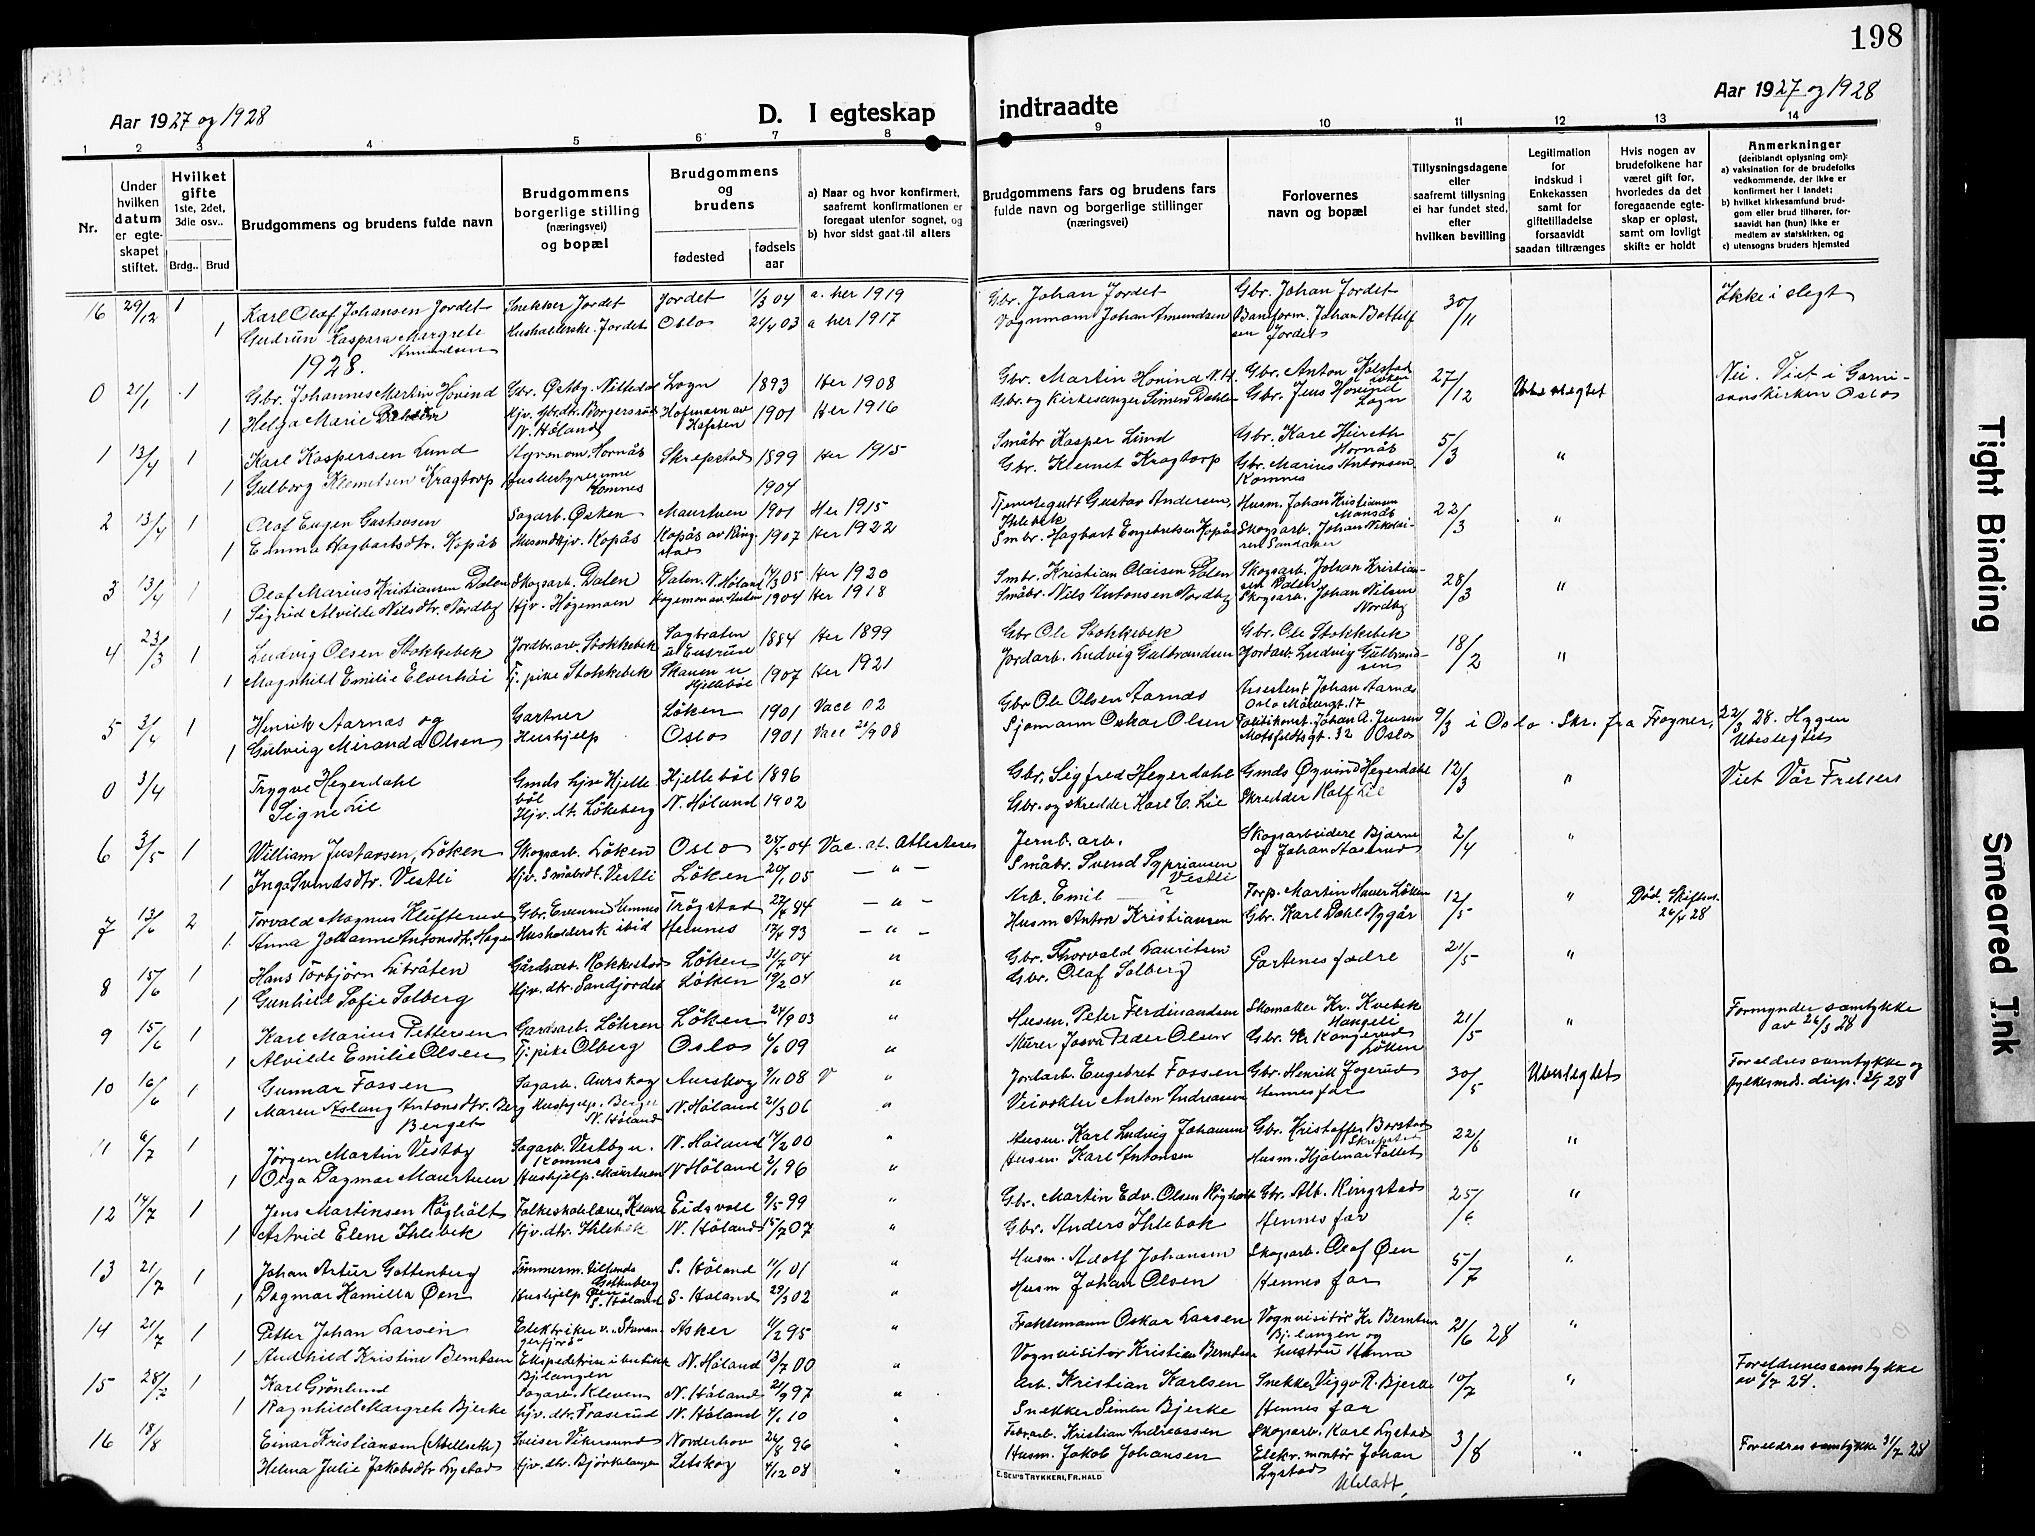 198
Aar 1927 og 1928
D. I egteskap indtraadte
Aar 1927 og 1928
1 2 3 4 5 6 7 8 9 10 11 12 13 14
Nr.
Under hvilken datum er egteskapet stiftet.
Hvilket gifte 1ste, 2det, 3die osv..
Brdg.. Brud
Brudgommens og brudens fulde navn
Brudgommens borgerlige stilling (næringsvei) og bopæl
Brudgommens og brudens
fødested
fødsels aar
a) Naar og hvor konfirmert, saafremt konfirmationen er foregaat utenfor sognet, og
b) hvor sidst gaat til alters
Brudgommens fars og brudens fars fulde navn og borgerlige stillinger (næringsvei)
Forlovernes navn og bopæl
Tillysningsdagene eller saafremt tillysning ei har fundet sted, efter hvilken bevilling
Legitimation for indskud i Enkekassen samt for giftetilladelse forsaavidt saadan tiltrænges
Hvis nogen av brudefolkene har været gift før, hvorledes da det foregaaende egteskap er opløst, samt om lovligt skifte er holdt
Anmerkninger (deriblandt oplysning om):
a) vaksination for de brudefolks vedkommende, der ikke er konfirmert her i landet;
b) hvilket kirkesamfund brudgom eller brud tilhører, forsaavidt han (hun) ikke er medlem av statskirken, og
c) utensogns bruders hjemsted
16 29/12 1 Karl Olaf Johansen Jordet Snekker Jordet Jordet 1/3 04 a. her 1919 Gbr. Johan Jordet Gbr. Johan Jordet 30/11 Ikke i slegt
1 Gudrun Kaspara Margrete Amundsen Husholderske Jordet Oslo 03 a her 1917 Vognmann Johan Amundsen Baneform. Johan Jordet
1928.
0 21/1 1 Gbr. Johannes Martin Hovind Gbr. Østby. Nittedal Logn 1893 Her 1908 Gbr. Martin Hovind N.H. Gbr. Anton 27/12 Nei. Viet i Garnisonskirken Oslo
1 Helga Marie Dahlen Hjv. N. Høland 1901 Her 1916 Gbr. og kirkesanger Simen Dahlen Gbr. Jens Hovind Logn
1 13/4 1 Karl Kaspersen Lund Hornås Skrepstad 1899 Her 1915 Småbr Kasper Lund Gbr. Kare Hornås 5/3 "
1 Gulborg Klemetsen Kragtorp Komnes 1904 Gbr. Klemet Kragtorp Gbr. Marius Antonsen Komnes
2 13/4 1 Olaf Eugen Gustavsen Sagarb. Østen Maurtuen 1901 Her 1915 Tjenestegutt Gustav Andersen, Ihlebek Husm. Johan Kristiansen 22/3 "
1 Emma Hagbartsdtr. Kopås Kopås Kopås av Ringstad 1907 Her 1922 Smbr. Hagbart Engebretsen Kopås Skogsarb. Johan Nikolaisen Sandaker
3 13/4 1 Olaf Marius Kristiansen Dalen Skogsarb. Dalen Dalen. N. Høland 05 Her 1920 Smbr. Kristian Olaisen Dalen Skogsarb. Johan Kristiansen Dalen 28/3 "
1 Sigrid Alvilde Nilsdtr. Nordby Hjv. Høgemoen 1904 Her 1918 Småbr. Nils Antonsen Nordby Skogsarb. Johan Nilsen Nordby
4 23/3 1 Ludvig Olsen Stokkebek Jordbr.arb. Stokkebek Sagbraten 1884 Her 1899 Gbr Ole Stokkebek Gbr. Ole Stokkebek 18/2 "
1 Magnhild Emilie Elverhøi Tj. pike Stokkebek Skauen u Hjellebøl 1907 Her 1921 Jordarb. Ludvig Gulbrandsen Jordarb. Ludvig Gulbrandsen
5 3/4 1 Henrik Aarnas og Gartner Løken 1901 Vacc 02 Gbr Ole Olsen Aarnas Assistent Johan Aarnas Oslo 9/3 i Oslo. Skr. fra Frogner, 22/3 28. Heggen
1 Gulveig Miranda Olsen Hushjelp Oslo 1901 Vacc 08 Sjømann Oskar Olsen Politikonst. Johan A. Jensen Motzfeldtsgt. 32 Oslo Ubeslegtet
0 3/4 Trygve Hegerdahl Gmds hjv Hjellebøl Hjellebøl 1896 Gbr. Sigfred Hegerdahl Gmds Øyvind Hegerdahl 12/3 " Viet Vår Frelsers
Signe Lie Hjv. At. Løkeberg N. Høland 1902 Gbr. og skredder Karl C. Lie Skredder Rolf Lie
6 3/5 1 William Justansen, Løken Skogsarb. Løken Oslo 04 Vac. at. Attesteres Jernb. arb. Skogsarbeidere Bjarne og Johan 2/4 "
1 Inga Svendsdtr. Vestli Hjv. Småbrdt. Vestli Løken 20/1 05 — " — Småbr. Svend Sypriansen Vestli
7 13/6 2 Torvald Magnus Klufterud Gbr. Evenrud Hemnes Trøgstad 84 — " — Arb. Emil — ? Forp. Martin Haver Løken 12/5 " Død. Skifteat. 26/4 28
1 Anna Johanne Antonsdtr. Hagen Husholdersk ibid Hemnes 17/4 93 — " — Husm Anton Kristiansen Gbr. Karl Dahl Nygår
8 15/6 1 Hans Torbjørn Libråten Gårdsarb. Rakkestad Løken 31/7 04 " Gbr. Thorvald Lauritsen Partenes fædre 21/5 "
1 Gunhild Sofie Solberg Hjv. dtr. Sandjordet Løken 19/2 04 " Gbr. Olaf Solberg
9 15/6 1 Karl Marius Pettersen Gardsarb. Løken 24/9 03 " Husm. Peter Ferdinandsen Skomaker Kr. Kvebek Hangeli 21/5 " Formynder samtykke av 26/3 28
1 Alvilde Emilie Olsen Tj. pike Olberg Oslo 6/6 09 " Murer Josva Peder Olsen Gbr. Kr Kongerud Løken
10 16/6 1 Gunnar Fossen Sagarb. Aurskog Aurskog 9/11 08 V " Jordarb. Engebret Fossen Gbr. Henrik Jogerud 30/5 Ubeslegtet Foreldres samtykke og fylkesmds. disp. 28
1 Maren Aslaug Antonsdtr. Berg Berget Hushjelp. Berger N. Høland N. Høland 21/3 06 " Veivokter Anton Andreasen Hennes far
11 6/7 1 Jørgen Martin Vestby Sagarb. Vestby u. Komnes N. Høland 14/2 00 " Husm. Karl Ludvig Johansen Gbr. Kristoffer Borstad 22/6 "
1 Olga Dagmar Maurtuen Hushjelp. Maurtuen N Høland 2/1 96 " Husm. Karl Antonsen Husm. Hjalmar Tollet
12 14/7 1 Jens Martinsen Råghålt Folkeskolelærer Eidsvoll 9/5 99 " Gbr. Martin Edv. Olsen Råghålt Gbr. Alb. Ringstad 25/6 "
1 Astrid Elene Ihlebek Hjv. dtr. Ihlebek N. Høland 15/7 07 " Gbr. Anders Ihlebek Hennes far
13 21/7 1 Johan Artur Gottenberg Tømmerm. Gottenberg S. Høland 11/1 01 " Husm. Adolf Johansen Skogsarb. Olaf Øen 5/7 "
1 Dagmar Kamilla Øen Hushjelp Øen S. Høland S. Høland 29/3 02 " Husm Johan Olsen Hennes far
14 21/7 1 Petter Johan Larsen Elektriker v. "Stavangerfjord" Asker 11/2 95 " Fraktemann Oskar Larsen Vognvisitør Kr Berntsen Bj.langen og 21/6 28 "
1 Audhild Kristine Berntsen Ekspeditrise i butikk Bj.langen N. Høland 13/7 00 " Vognvisitør Kristian Berntsen hustru Anna
15 28/7 1 Karl Grønlund Sagarb. Kleven N. Høland 21/9 97 " Arb. Kristian Karlsen Snekker Viggo R. Bjerke 10/7 " Foreldrenes samtykke av 6/7 28.
1 Ragnhild Margreth Bjerke Hjv. dtr. Fraserud N. Høland 4/1 10 " Snekker Simen Bjerke Hennes far
16 18/8 Einar Kristiansen (Mellseth) Sveiser Vikersund Norderhov 26/8 96 " Fabrarb. Kristian Andreassen Skogsarb. Karl Lystad 3/8 " Foreldres samtykke 31/7 28
Helma Julie Jakobsdtr Lystad Hjv. dtr. Bjørkelangen Setskog 4/12 08 " Husm. Jakob Johansen Elekr. montør Johan Lystad
E. SEM'S TRYKKERI, FR.HALD
Tight Binding
Smeared Ink